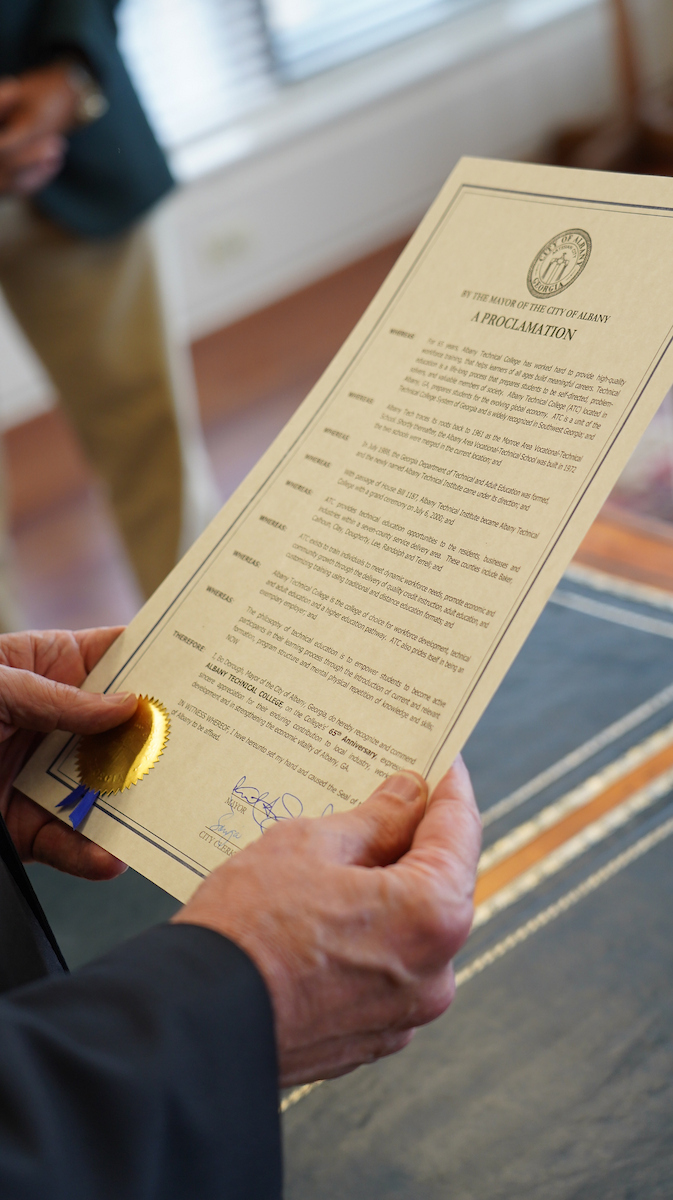 CITY OF ALBANY
GEORGIA
BY THE MAYOR OF THE CITY OF ALBANY
A PROCLAMATION
WHEREAS: For 65 years, Albany Technical College has worked hard to provide, high-quality
workforce training, that helps learners of all ages build meaningful careers. Technical
education is a life-long process that prepares students to be self-directed, problem-
solvers, and valuable members of society. Albany Technical College (ATC) located in
Albany, GA, prepares students for the evolving global economy. ATC is a unit of the
Technical College System of Georgia and is widely recognized in Southwest Georgia; and
WHEREAS: Albany Tech traces its roots back to 1961 as the Monroe Area Vocational-Technical
School. Shortly thereafter, the Albany Area Vocational-Technical School was built in 1972
the two schools were merged in the current location; and
WHEREAS: In July 1988, the Georgia Department of Technical and Adult Education was formed,
and the newly named Albany Technical Institute came under its direction; and
WHEREAS: With passage of House Bill 1187, Albany Technical Institute became Albany Technical
College with a grand ceremony on July 6, 2000; and
WHEREAS: ATC, provides technical education opportunities to the residents, businesses and
industries within a seven-county service delivery area. These counties include Baker,
Calhoun, Clay, Dougherty, Lee, Randolph and Terrell; and
WHEREAS: ATC exists to train individuals to meet dynamic workforce needs, promote economic and
community growth through the delivery of quality credit instruction, adult education, and
customized training using traditional and distance education formats; and
WHEREAS: Albany Technical College is the college of choice for workforce development, technical
and Adult education and a higher education pathway. ATC also prides itself in being an
exemplary employer; and
WHEREAS: The philosophy of technical education is to empower students to become active
participants in their learning process through the introduction of current and relevant
formation, program structure and mental physical repetition of knowledge and skills;
NOW
THEREFORE: I, Bo Dorough, Mayor of the City of Albany, Georgia, do hereby recognize and commend
ALBANY TECHNICAL COLLEGE, on the College's 65th Anniversary
sincere appreciation for their enduring contribution to local industry,
development and in strengthening the economic vitality of Albany, GA.
IN WITNESS WHEREOF, I have hereunto set my hand and caused the Seal of
of Albany to be affixed.
MAYOR
CITY CLERK